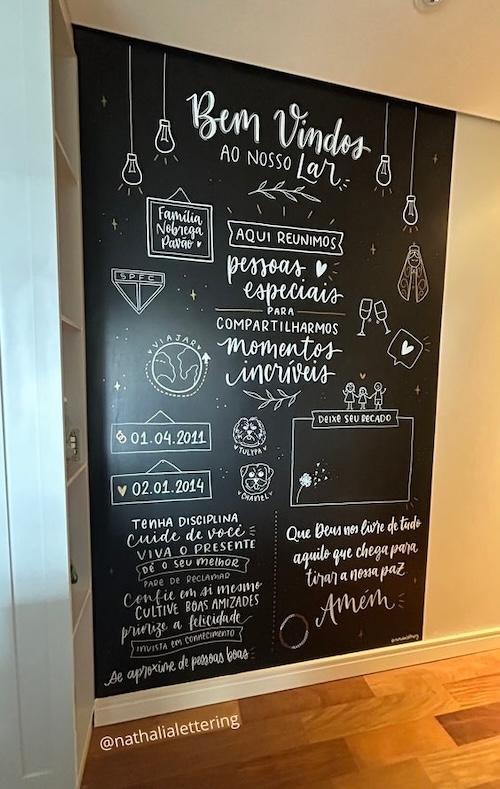 Bem Vindos
AO NOSSO Lar
Família
Nobrega
Pavão
AQUI REUNIMOS
pessoas
especiais
PARA
COMPARTILHARMOS
momentos
incríveis
SPFC
VIAJAR
01.04.2011
02.01.2014
TULYPA
CHANEL
DEIXE SEU RECADO
TENHA DISCIPLINA
Cuide de você
VIVA O PRESENTE
DÊ O SEU MELHOR
PARE DE RECLAMAR
Confie em si mesmo
CULTIVE BOAS AMIZADES
priorize a felicidade
INVISTA EM CONHECIMENTO
Se aproxime de pessoas boas
Que Deus nos livre de tudo
aquilo que chega para
tirar a nossa paz
Amém
@nathalialettering
@nathalialettering